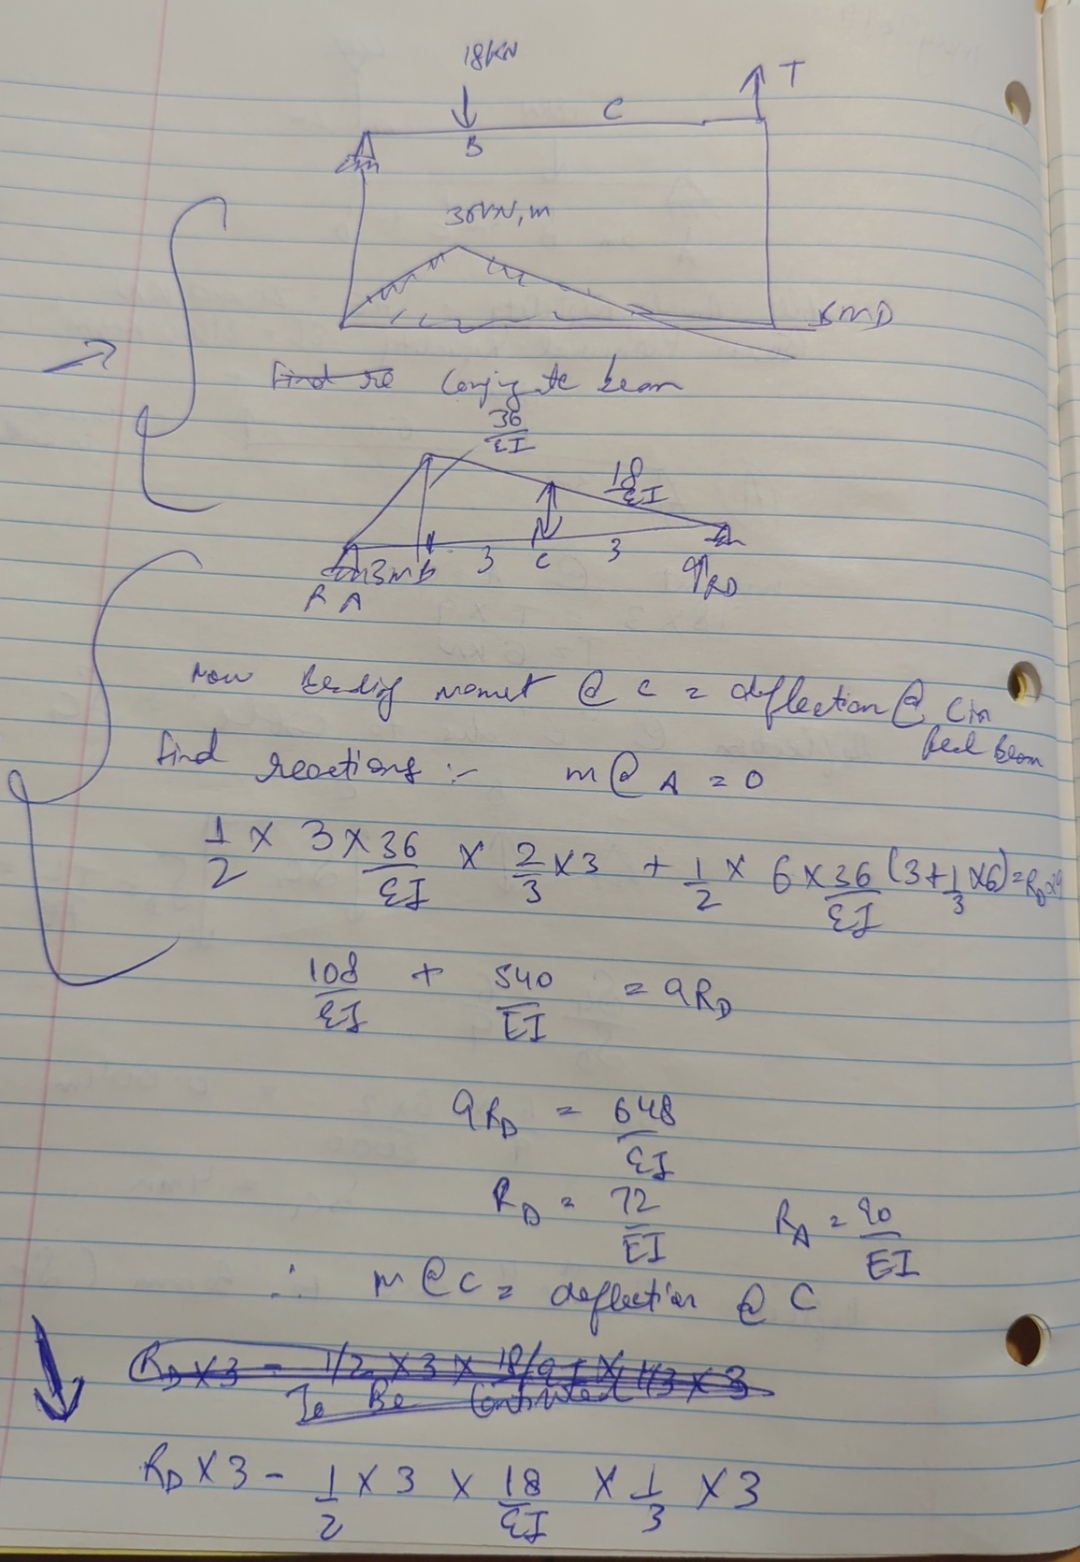 18KN
T
C
B
36KN,m
BMD
Find re Conjugate beam
36/EI
18/EI
3m B 3 C 3
RA RD
Now bending moment @ C = deflection @ C in
real beam
find reactions :- m@A = 0
1/2 × 3 × 36/EI × 2/3 × 3 + 1/2 × 6 × 36/EI (3+1/3×6) = RD×9
108/EI + 540/EI = 9RD
9RD = 648/EI
RD = 72/EI RA = 90/EI
∴ m@C = deflection @ C
RD×3 - 1/2 × 3 × 18/EI × 1/3 × 3
To Be Continued
RD×3 - 1/2 × 3 × 18/EI × 1/3 × 3